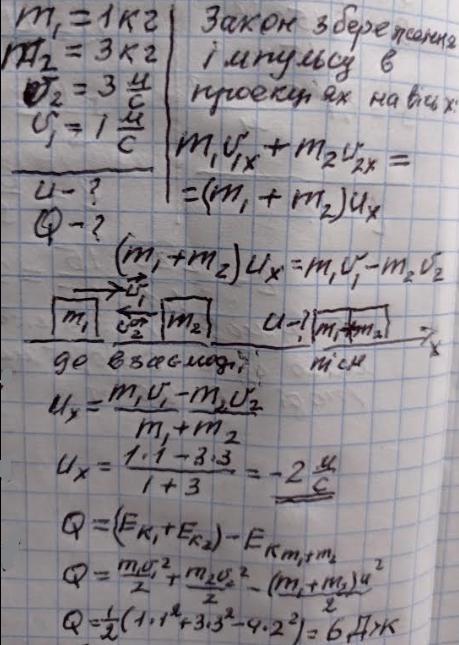 m₁ = 1 кг
m₂ = 3 кг
υ₂ = 3 м/с
υ₁ = 1 м/с
u - ?
Q - ?
Закон збереження
імпульсу в
проекціях на вісь x:
m₁υ₁ₓ + m₂υ₂ₓ =
= (m₁ + m₂)uₓ
(m₁ + m₂)uₓ = m₁υ₁ - m₂υ₂
υ⃗₁
m₁ υ⃗₂ m₂ u - ? m₁ + m₂ x
до взаємодії після
uₓ = (m₁υ₁ - m₂υ₂)/(m₁ + m₂)
uₓ = (1·1 - 3·3)/(1 + 3) = -2 м/с
Q = (Eк₁ + Eк₂) - Eк m₁+m₂
Q = m₁υ₁²/2 + m₂υ₂²/2 - (m₁ + m₂)u²/2
Q = 1/2 (1·1² + 3·3² - 4·2²) = 6 Дж